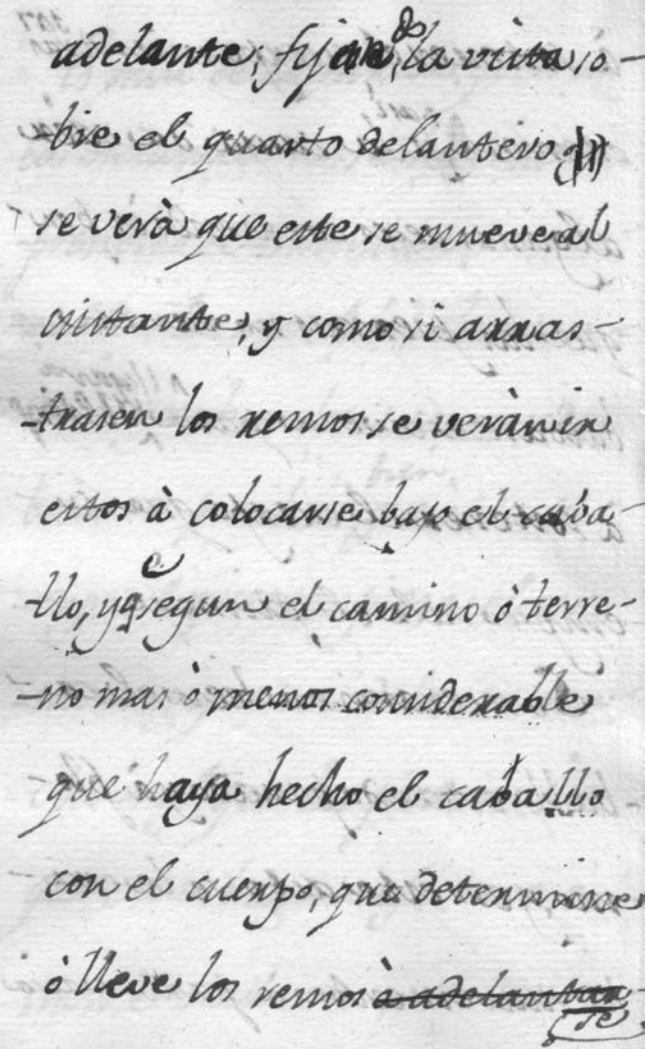 adelante; fijando la vista so-
-bre el quarto delantero
se verà que este se mueve al
instante, y como si arras-
-trasen los remos se veràn ir
estos à colocarse bajo el caba-
-llo, y q.e segun el camino ò terre-
-no mas ò menos considerable
que haya hecho el caballo
con el cuerpo, que determine
ò lleve los remos à adelantar
se